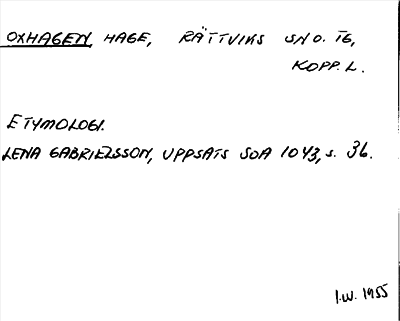 OXHAGEN, HAGE, RÄTTVIKS SN O. TG,
KOPP. L.
ETYMOLOGI.
LENA GABRIELSSON, UPPSATS SOA 1043, s. 36.
I.W. 1955